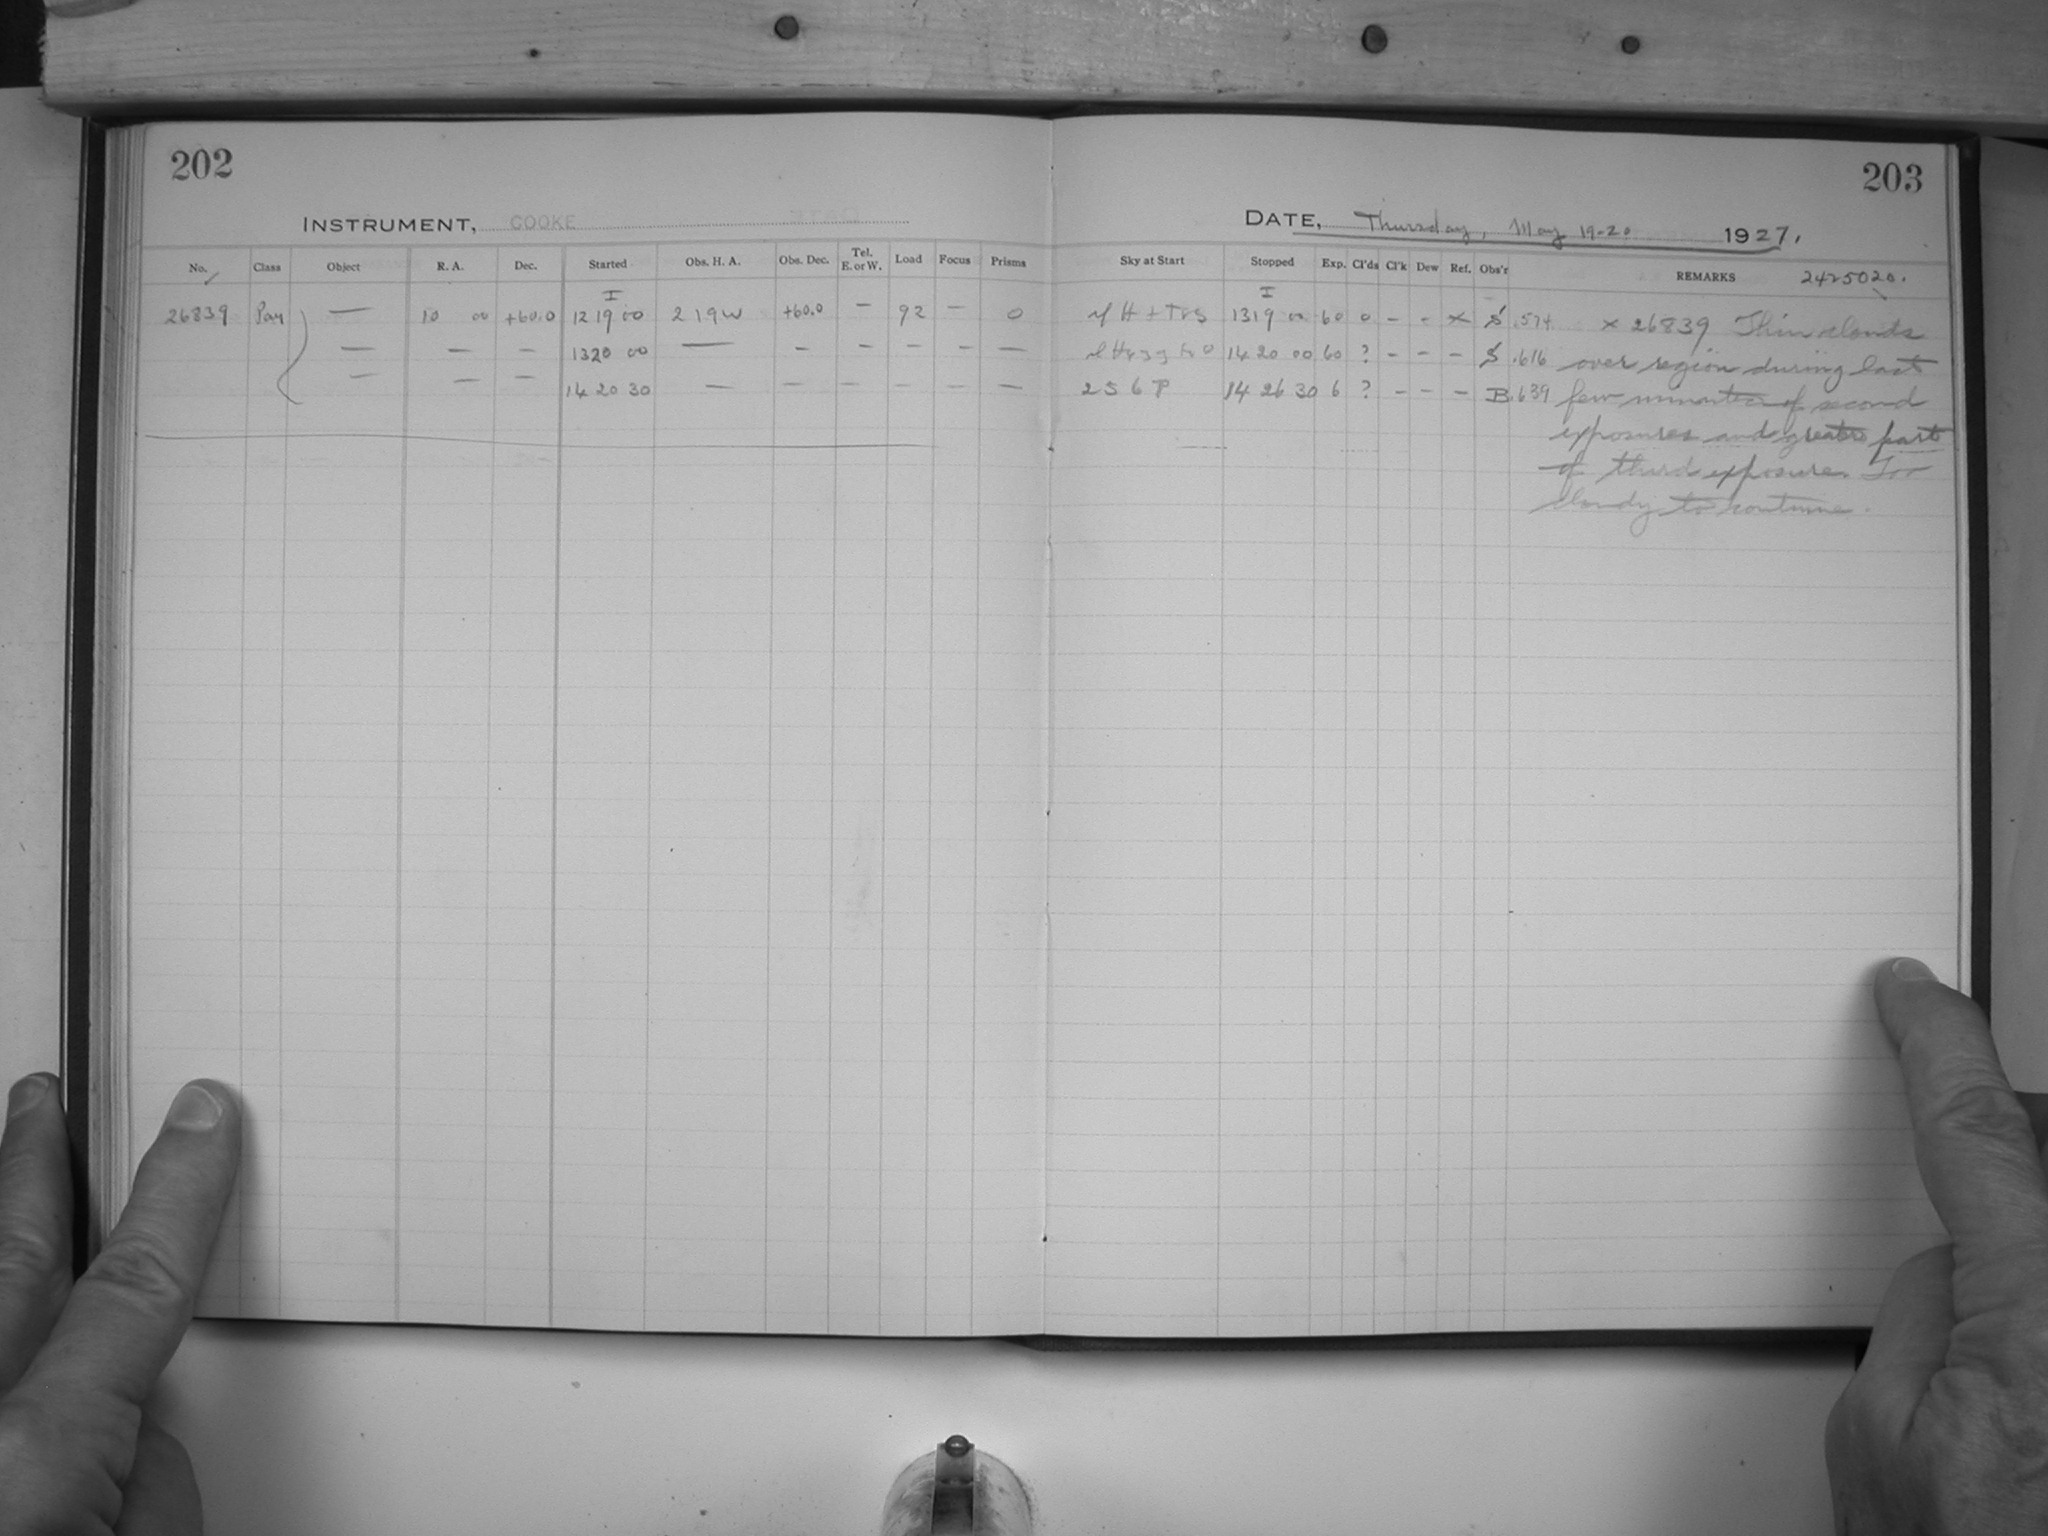 202
203
INSTRUMENT, COOKE
DATE, Thursday, May 19-20 1927.
No. Class Object R. A. Dec. Started Obs. H. A. Obs. Dec. Tel. E. or W. Load Focus Prisms Sky at Start Stopped Exp. Cl'ds Cl'k Dew Ref. Obs'r REMARKS 2425020.
I I
26839 10 00 +60.0 12 19 00 2 19 W +60.0 — 92 — 0 13 19 00 60 0 - - x S .574 x 26839 Thin clouds
— — — 13 20 00 — — — — — — 14 20 00 60 ? - - - S .616 over region during last
— — — 14 20 30 — — — — — — 2 5 6 P 14 26 30 6 ? - - - B .639 few minutes of second
exposures and greater part
of third exposure. Too
cloudy to continue.